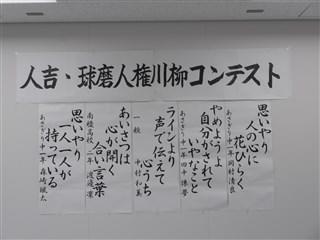 人吉・球磨人権川柳コンテスト
思いやり
人の心に
花ひらく
あさぎり中一年 岡村清良
やめようよ
自分がされて
いやなこと
ラインより
声で伝えて
心うち
一般 中村和美
あいさつは
心が開く
合い言葉
南稜高校 二年 渡邊
思いやり
一人一人が
持っている
あさぎり中一年 森崎颯太